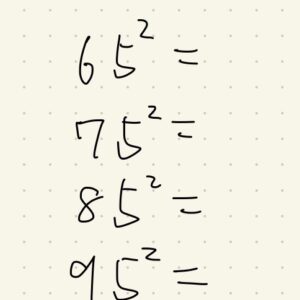 65² =
75² =
85² =
95² =